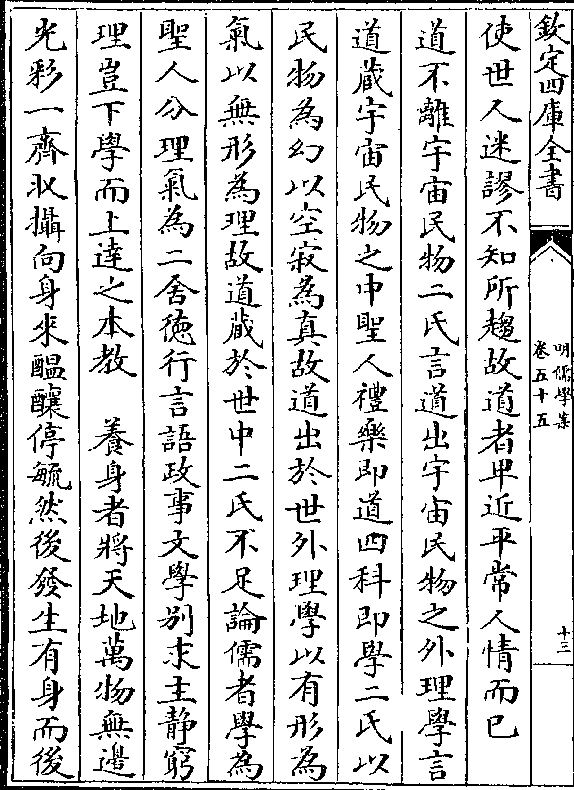 欽定四庫全書
明儒學案
卷五十五
十三
使世人迷謬不知所趨故道者甲近平常人情而已
道不離宇宙民物二氏言道出宇宙民物之外理學言
道蔵宇宙民物之中聖人禮樂即道四科即學二氏以
民物為幻以空寂為真故道出於世外理學以有形為
氣以無形為理故道蔵於世中二氏不足論儒者學為
聖人分理氣為二舍徳行言語政事文學别求主靜窮
理豈下學而上達之本教　養身者將天地萬物無邊
光彩一齊收攝向身來醖釀停毓然後發生有身而後